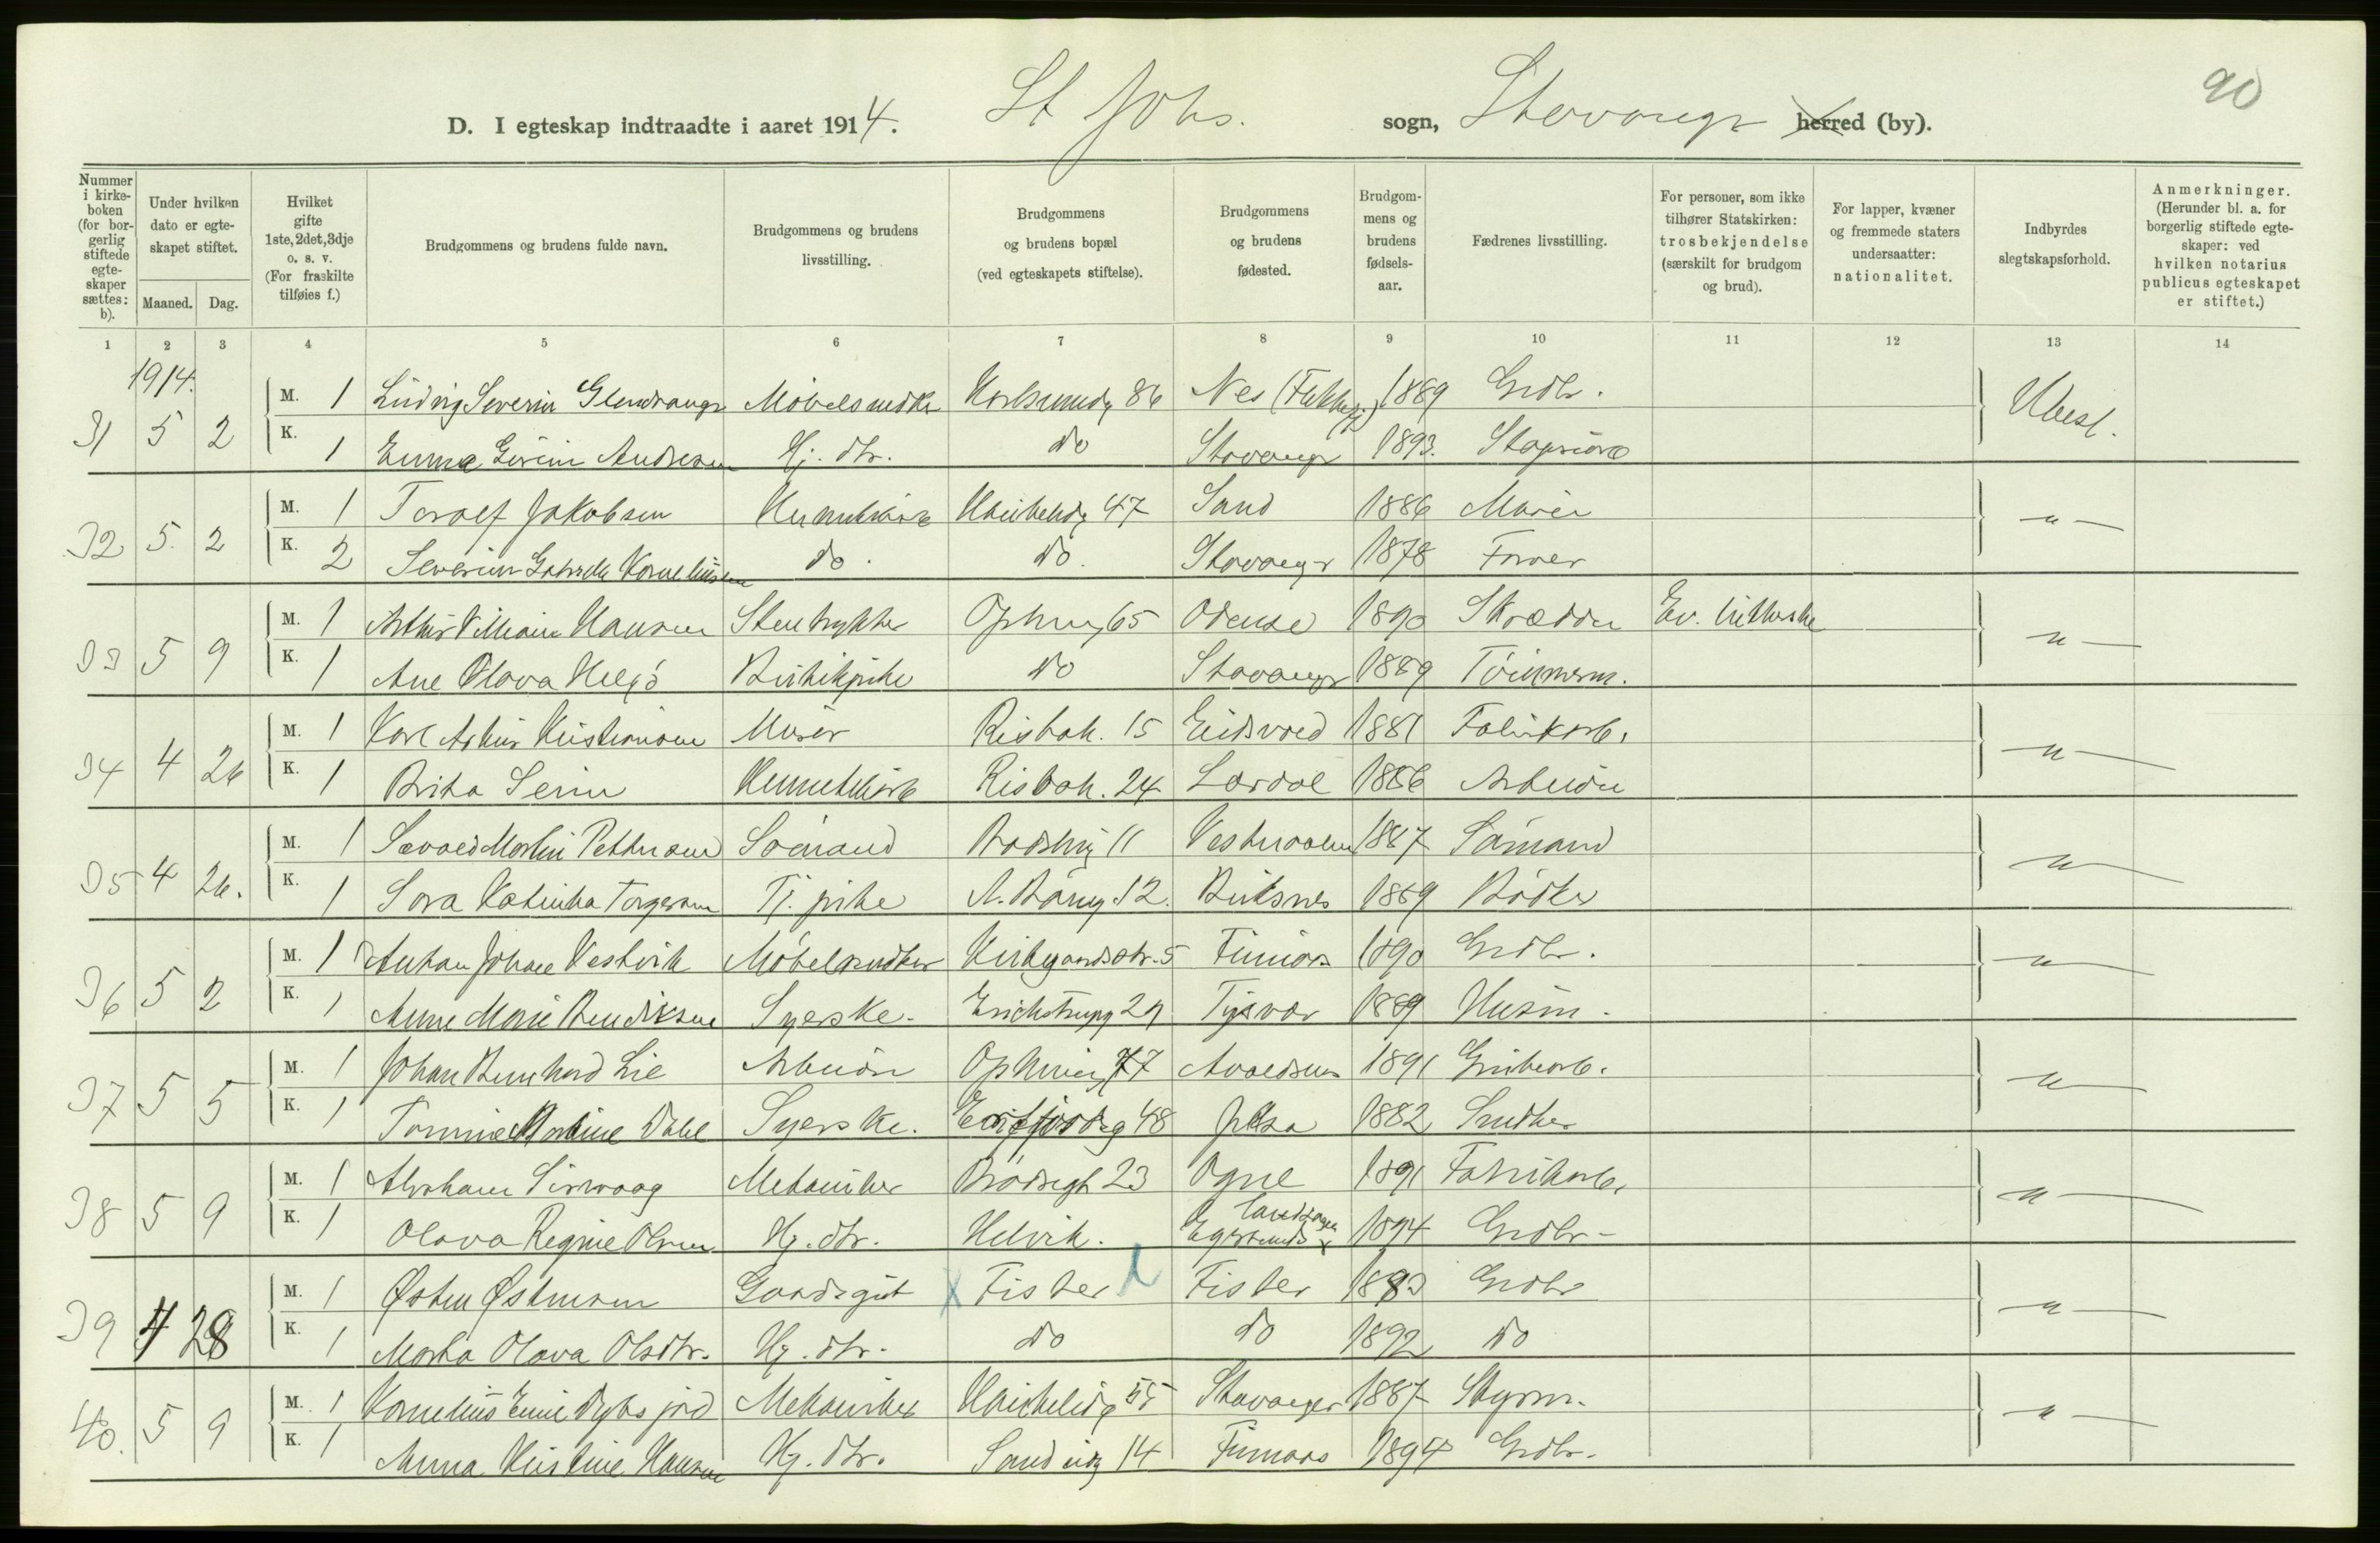 90
D. I egteskap indtraadte i aaret 1914. St Johs. sogn, Stavanger herred (by).
Nummer i kirkeboken (for borgerlig stiftede egteskaper sættes: b).
Under hvilken dato er egteskapet stiftet.
Maaned. Dag.
Hvilket gifte 1ste, 2det, 3dje o. s. v. (For fraskilte tilføies f.)
Brudgommens og brudens fulde navn.
Brudgommens og brudens livsstilling.
Brudgommens og brudens bopæl (ved egteskapets stiftelse).
Brudgommens og brudens fødested.
Brudgommens og brudens fødselsaar.
Fædrenes livsstilling.
For personer, som ikke tilhører Statskirken: trosbekjendelse (særskilt for brudgom og brud).
For lapper, kvæner og fremmede staters undersaatter: nationalitet.
Indbyrdes slegtskapsforhold.
Anmerkninger. (Herunder bl. a. for borgerlig stiftede egteskaper: ved hvilken notarius publicus egteskapet er stiftet.)
1 2 3 4 5 6 7 8 9 10 11 12 13 14
1914.
31 5 2 M. 1 Ludvig Severin Glendrange Möbelsnedker 86 Nes (Flekkefj.) 1889 Grdbr. Ubesl.
K. 1 Emma Andersen Hj. dtr. do Stavanger 1893.
32 5. 2 M. 1 Toralf Jakobsen 47 Sand 1886 Murer -"-
K. 2 Severine Gabriella Korneliussen do. do. Stavanger 1878 Farver
33 5 9 M. 1 Arthur Villiam Hansen Stentrykker 65 Odense 1890 Skrædder Ev. lutherske -"-
K. 1 Ane Olava Helgö Butikpike do Stavanger 1889 Tömmerm.
34 4 26 M. 1 Karl Arthur Kristiansen Murer Risbak. 15 Eidsvold 1881 Fabrikarb. -"-
K. 1 Brita Serine Risbak. 24 Lærdal 1886 Arbeider
35 4 26. M. 1 Martin Pettersen Sömand 11 1887 Sömand -"-
K. 1 Sara Katinka Torgersen Tj. pike 12. Buksnes 1889 Bödker
36 5 2 M. 1 Anton Johan Vestvik Möbelsnedker Kirkegaardsstr. 5 Finnöy 1890 Grdbr. -"-
K. 1 Anne Marie Bendiksen Syerske. Erichstrupg 29 Tysvær 1889 Husm.
37 5 5 M. 1 Johan Bernhard Lie Arbeider 77 Avaldsnes 1891 Grubearb. -"-
K. 1 Tomine Martine Dahl Syerske. Erfjordg 48 Jelsa 1882 Snedker
38 5 9 M. 1 Abraham Sirevaag Mekaniker Brödregt 23 Ogne 1891 Fabrikarb. -"-
K. 1 Olava Regine Olsen Hj. dtr. Helvik. Egersunds landsogn 1894 Grdbr.
39 4 28 M. 1 Østen Østensen Gaardsgut Fister Fister 1893 Grdbr -"-
K. 1 Marta Olava Olsdtr. Hj. dtr. do do 1892 do
40. 5 9 M. 1 Kornelius Emil Dybsjord Mekaniker 55 Stavanger 1887 Styrm. -"-
K. 1 Anna Kristine Hansen Hj. dtr. Sandvig 14 1894 Grdbr.